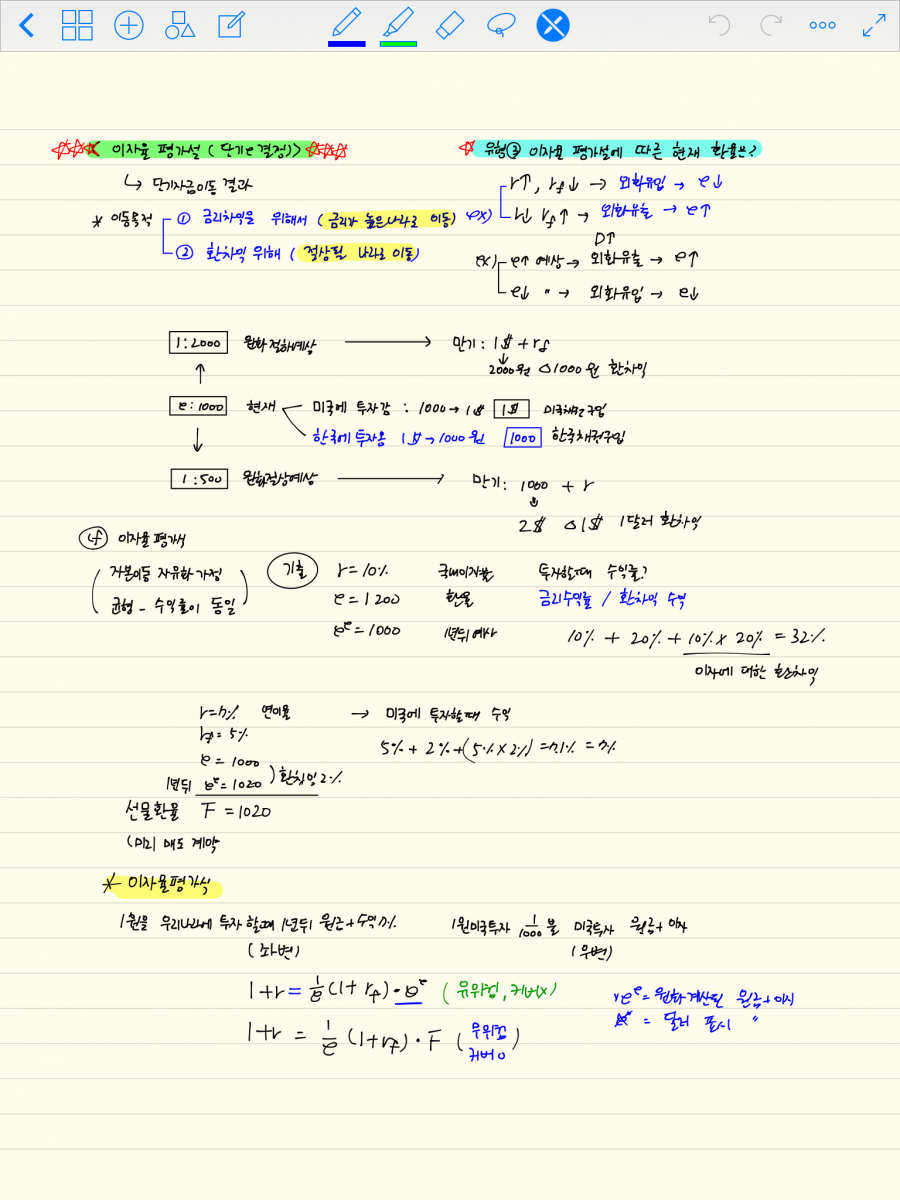 < 이자율 평가설 ( 단기 e 결정)>
↳ 단기자금이동 결과
* 이동목적
① 금리차익을 위해서 ( 금리가 높은나라로 이동)
② 환차익 위해 ( 절상될 나라로 이동)
유형③ 이자율 평가설에 따른 현재 환율은?
ex) r↑, rf↓ → 외화유입 → e↓
r↓ rf↑ → 외화유출 → e↑
D↑
ex) e↑ 예상 → 외화유출 → e↑
e↓ 〃 → 외화유입 → e↓
1:2000 원화절하예상 → 만기: 1$ + rf
2000원 △1000원 환차익
e:1000 현재 미국에 투자감 : 1000 → 1$ 1$ 미국채권구입
한국에 투자옴 1$ → 1000원 1000 한국채권구입
1:500 원화절상예상 → 만기: 1000 + r
2$ △1$ 1달러 환차익
4 이자율 평가식
( 자본이동 자유화 가정
균형 - 수익률이 동일 )
기출 r = 10% 국내이자율 투자할때 수익률?
e = 1200 환율 금리수익률 / 환차익 수익
eᵉ = 1000 1년뒤 예상 10% + 20% + 10% x 20% = 32%
이자에 대한 환차익
r = 7% 연이율 → 미국에 투자할때 수익
rf = 5% 5% + 2% + (5% x 2%) = 7.1% = 7%
e = 1000
1년뒤 eᵉ = 1020 ) 환차익 2%
선물환율 F = 1020
(미리 매도 계약
* 이자율평가식
1원을 우리나라에 투자 할때 1년뒤 원금 + 수익 7% 1원미국투자 1/1000 불 미국투자 원금 + 이자
( 좌변) ( 우변)
1+r = 1/e (1+rf) · eᵉ ( 유위험, 커버X)
1+r = 1/e (1+rf) · F ( 무위험 커버O )
eᵉ = 원화 계산된 원금 + 이자
= 달러 표시 〃